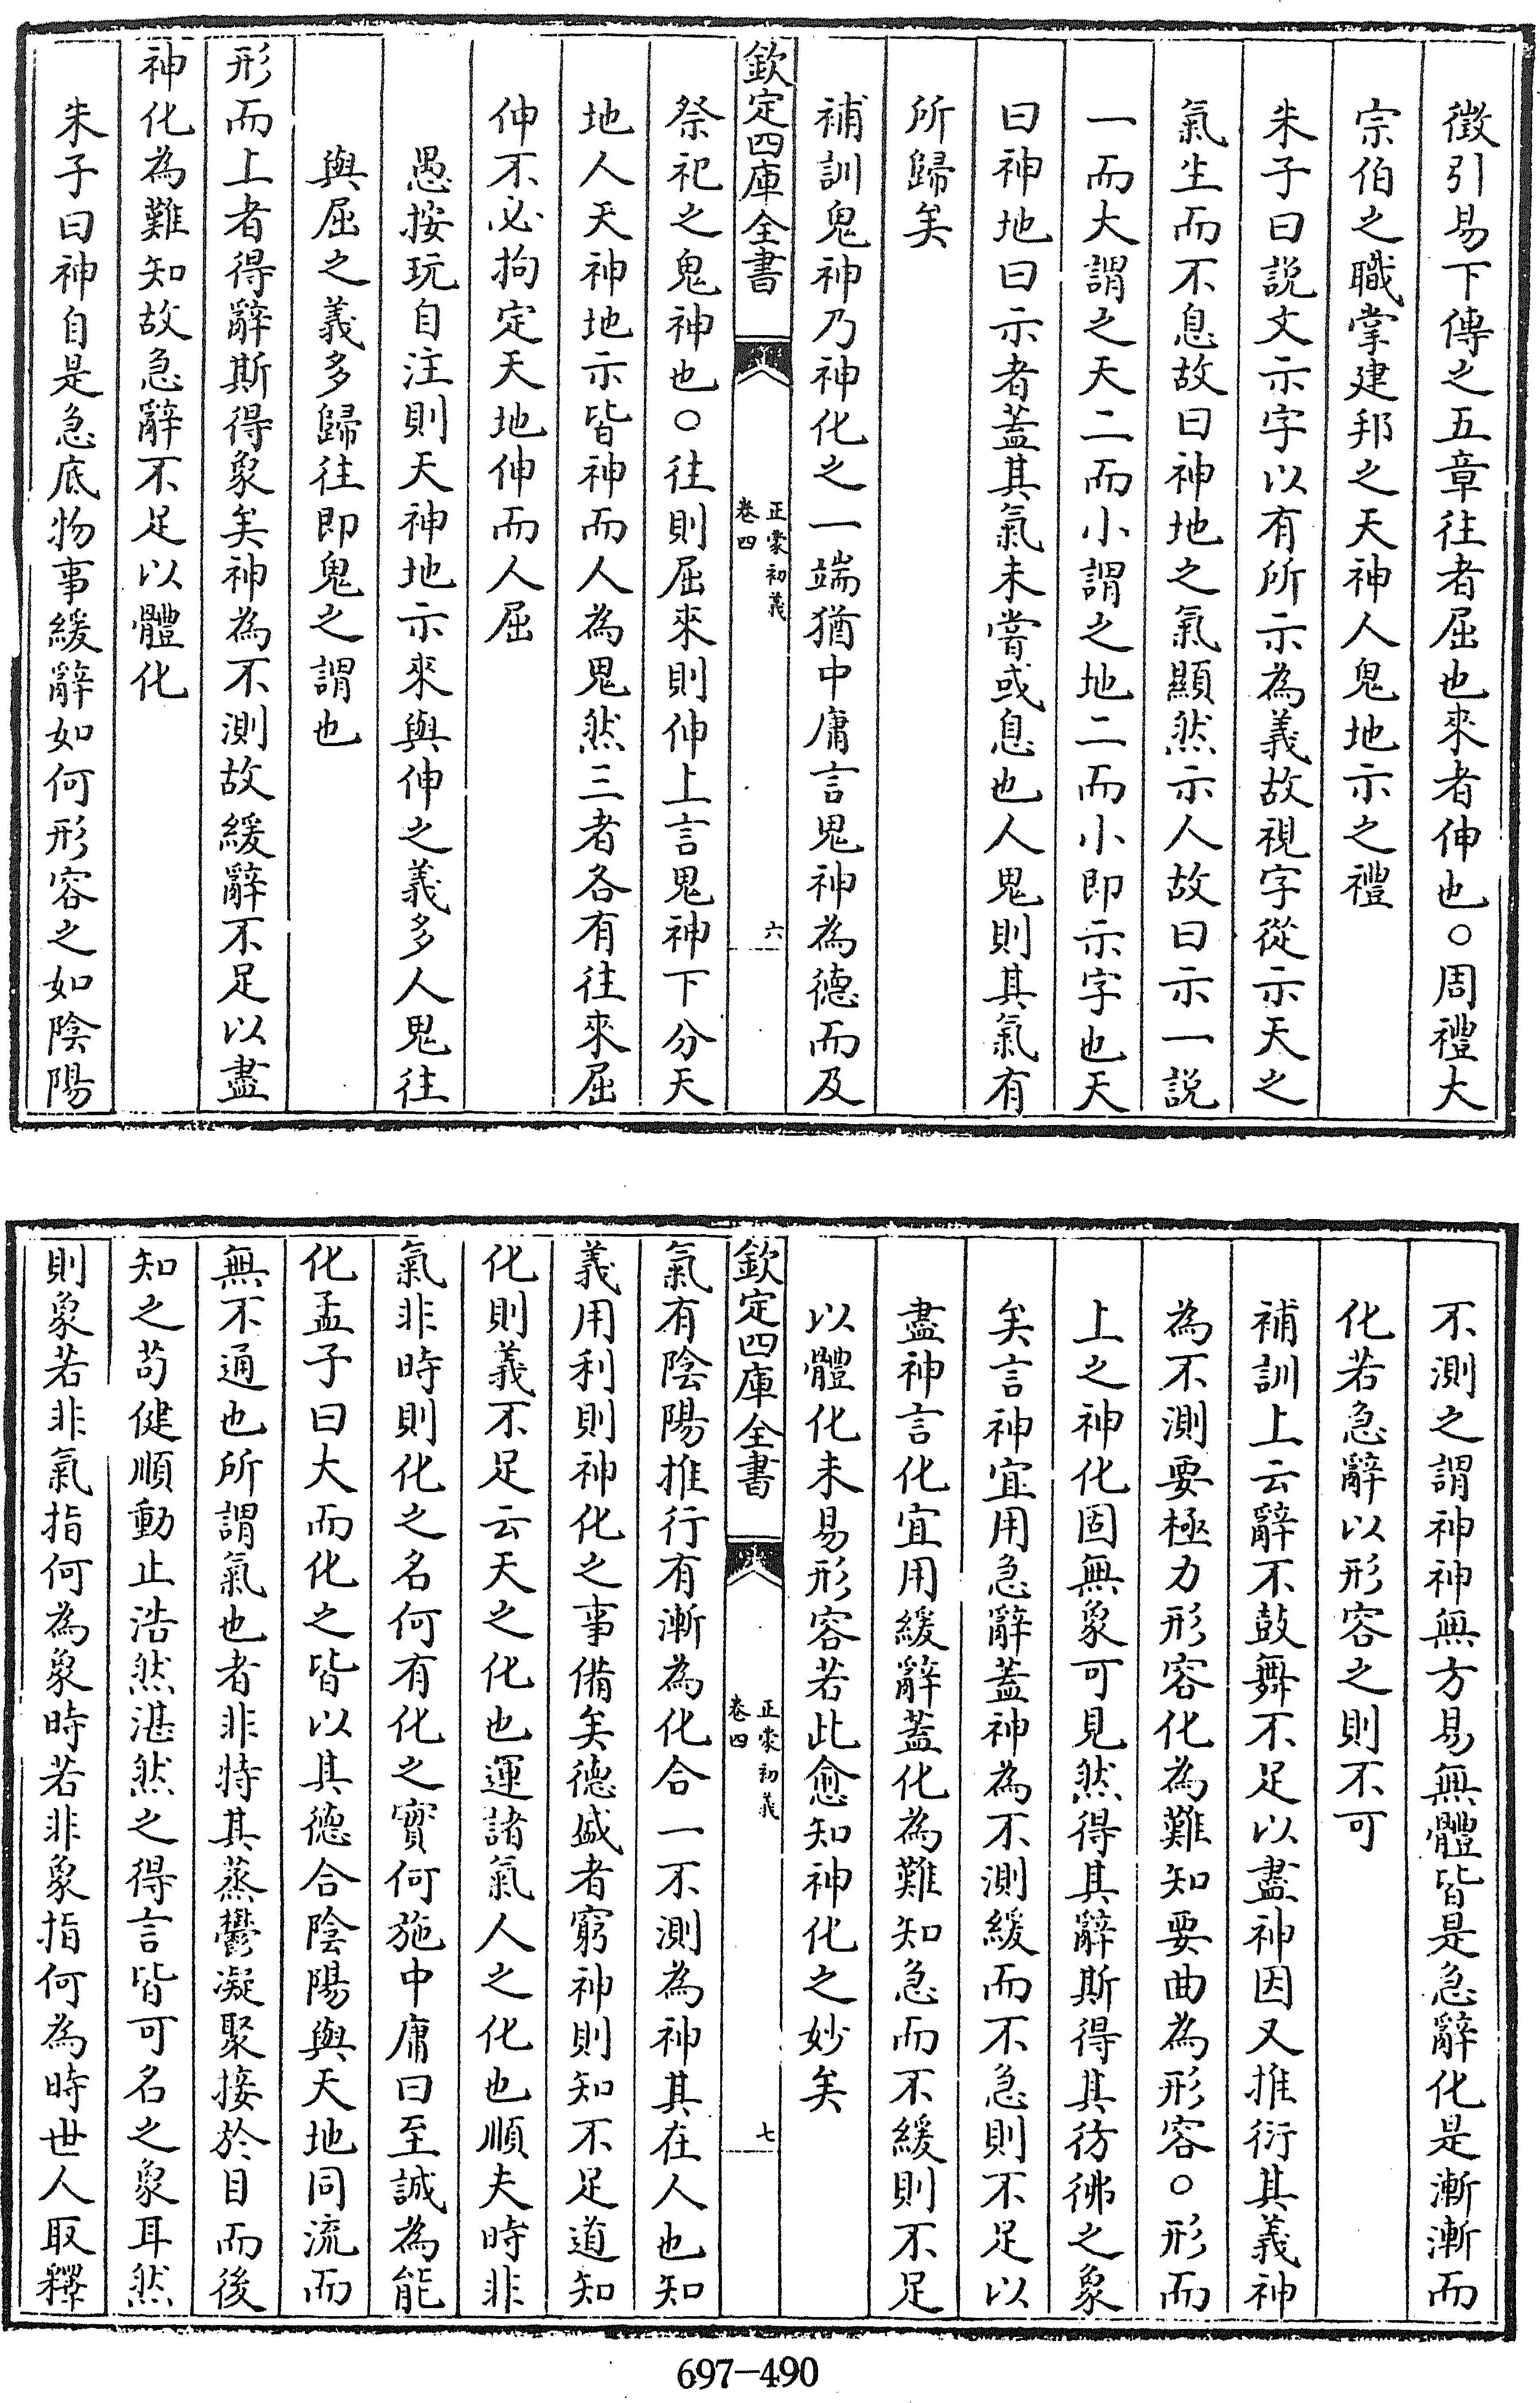 徴引易下傳之五章往者屈也來者伸也○周禮大
宗伯之職掌建邦之天神人鬼地示之禮
朱子曰説文示字以有所示為義故視字從示天之
氣生而不息故曰神地之氣顯然示人故曰示一説
一而大謂之天二而小謂之地二而小即示字也天
曰神地曰示者蓋其氣未嘗或息也人鬼則其氣有
所歸矣
補訓鬼神乃神化之一端猶中庸言鬼神為德而及
欽定四庫全書
正蒙初義
卷四
六
祭祀之鬼神也○往則屈來則伸上言鬼神下分天
地人天神地示皆神而人為鬼然三者各有往來屈
伸不必拘定天地伸而人屈
愚按玩自注則天神地示來與伸之義多人鬼往
與屈之義多歸往即鬼之謂也
形而上者得辭斯得象矣神為不測故緩辭不足以盡
神化為難知故急辭不足以體化
朱子曰神自是急底物事緩辭如何形容之如陰陽
不測之謂神神無方易無體皆是急辭化是漸漸而
化若急辭以形容之則不可
補訓上云辭不鼓舞不足以盡神因又推衍其義神
為不測要極力形容化為難知要曲為形容○形而
上之神化固無象可見然得其辭斯得其彷彿之象
矣言神宜用急辭蓋神為不測緩而不急則不足以
盡神言化宜用緩辭蓋化為難知急而不緩則不足
以體化未易形容若此愈知神化之妙矣
欽定四庫全書
正蒙初義
卷四
七
氣有陰陽推行有漸為化合一不測為神其在人也知
義用利則神化之事備矣德盛者窮神則知不足道知
化則義不足云天之化也運諸氣人之化也順夫時非
氣非時則化之名何有化之實何施中庸曰至誠為能
化孟子曰大而化之皆以其德合陰陽與天地同流而
無不通也所謂氣也者非特其蒸鬱凝聚接於目而後
知之苟健順動止浩然湛然之得言皆可名之象耳然
則象若非氣指何為象時若非象指何為時世人取釋
697-490